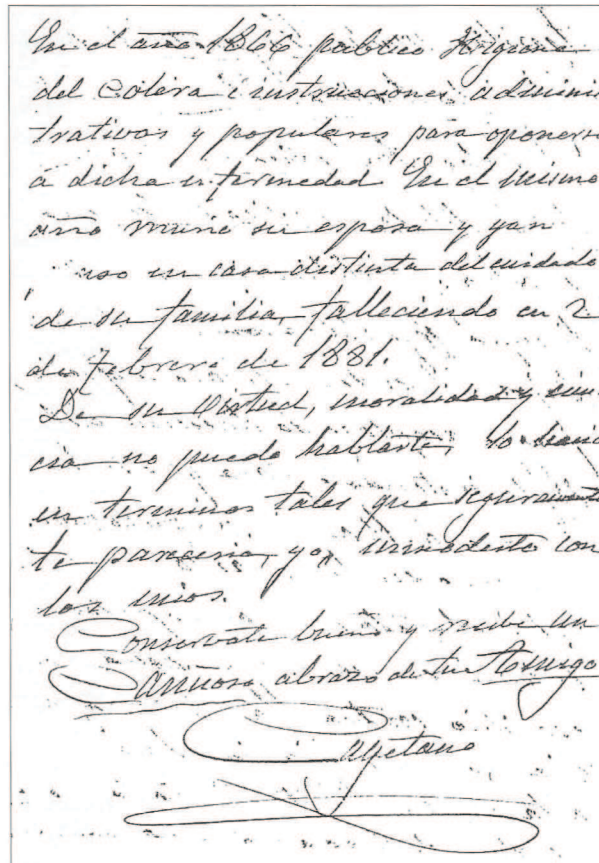 En el año 1866 publico Higiene
del Colera é instrucciones adminis
trativas y populares para oponerse
á dicha enfermedad. En el mismo
año murio su esposa y ya n
uso en cosa distinta del cuidado
de su familia, falleciendo en 2
de Febrero de 1881.
De su virtud, moralidad y
no puedo hablarte, lo haria
en terminos tales que seguramente
te pareceria, yo, inmodesto con
los mios.
Conservate bueno y recibe un
Cariñoso abrazo de tu Amigo
Cayetano